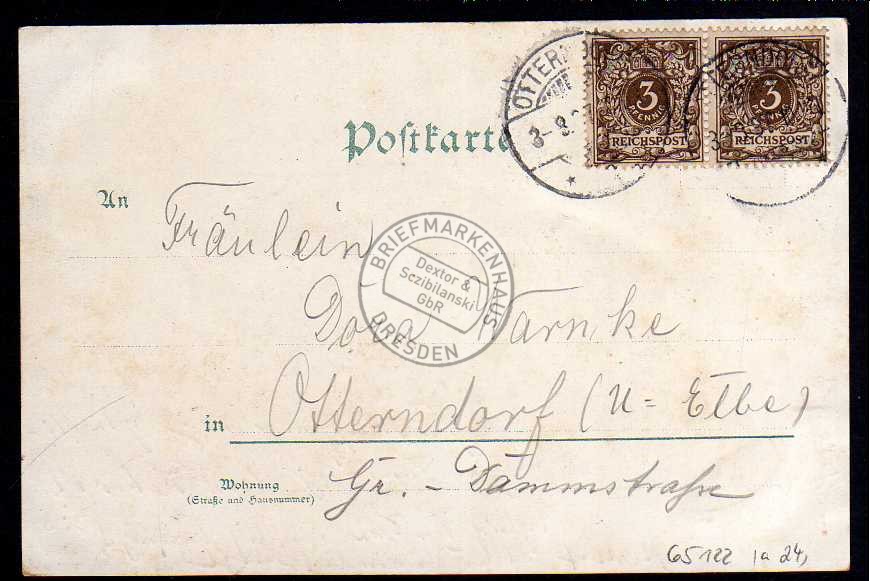 Postkarte
OTTERN
3
PFENNIG
REICHSPOST
3
PFENNIG
REICHSPOST
An
Fräulein
Dora Warnke
in Otterndorf (U=Elbe)
Wohnung
(Straße und Hausnummer)
Gr. - Dammstraße
BRIEFMARKENHAUS
Dextor &
Sczibilanski
GbR
DRESDEN
65122 1a 24,